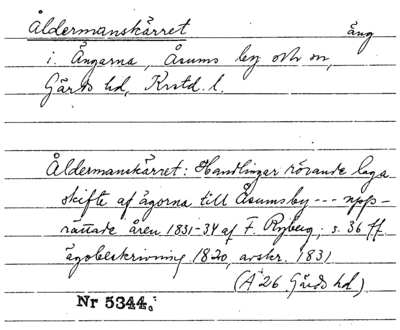 Åldermanskärret äng
i Ängarna, Åsums by och sn,
Gärds hd, Krstd. l.
Åldermanskärret: Handlingar rörande laga
skifte af ägorna till Åsumsby --- upp-
rättade åren 1831-34 af F. Ryberg, s. 36 ff.
ägobeskrivning 1820, avskr. 1831
(A 26 Gärds hd)
Nr 5344.